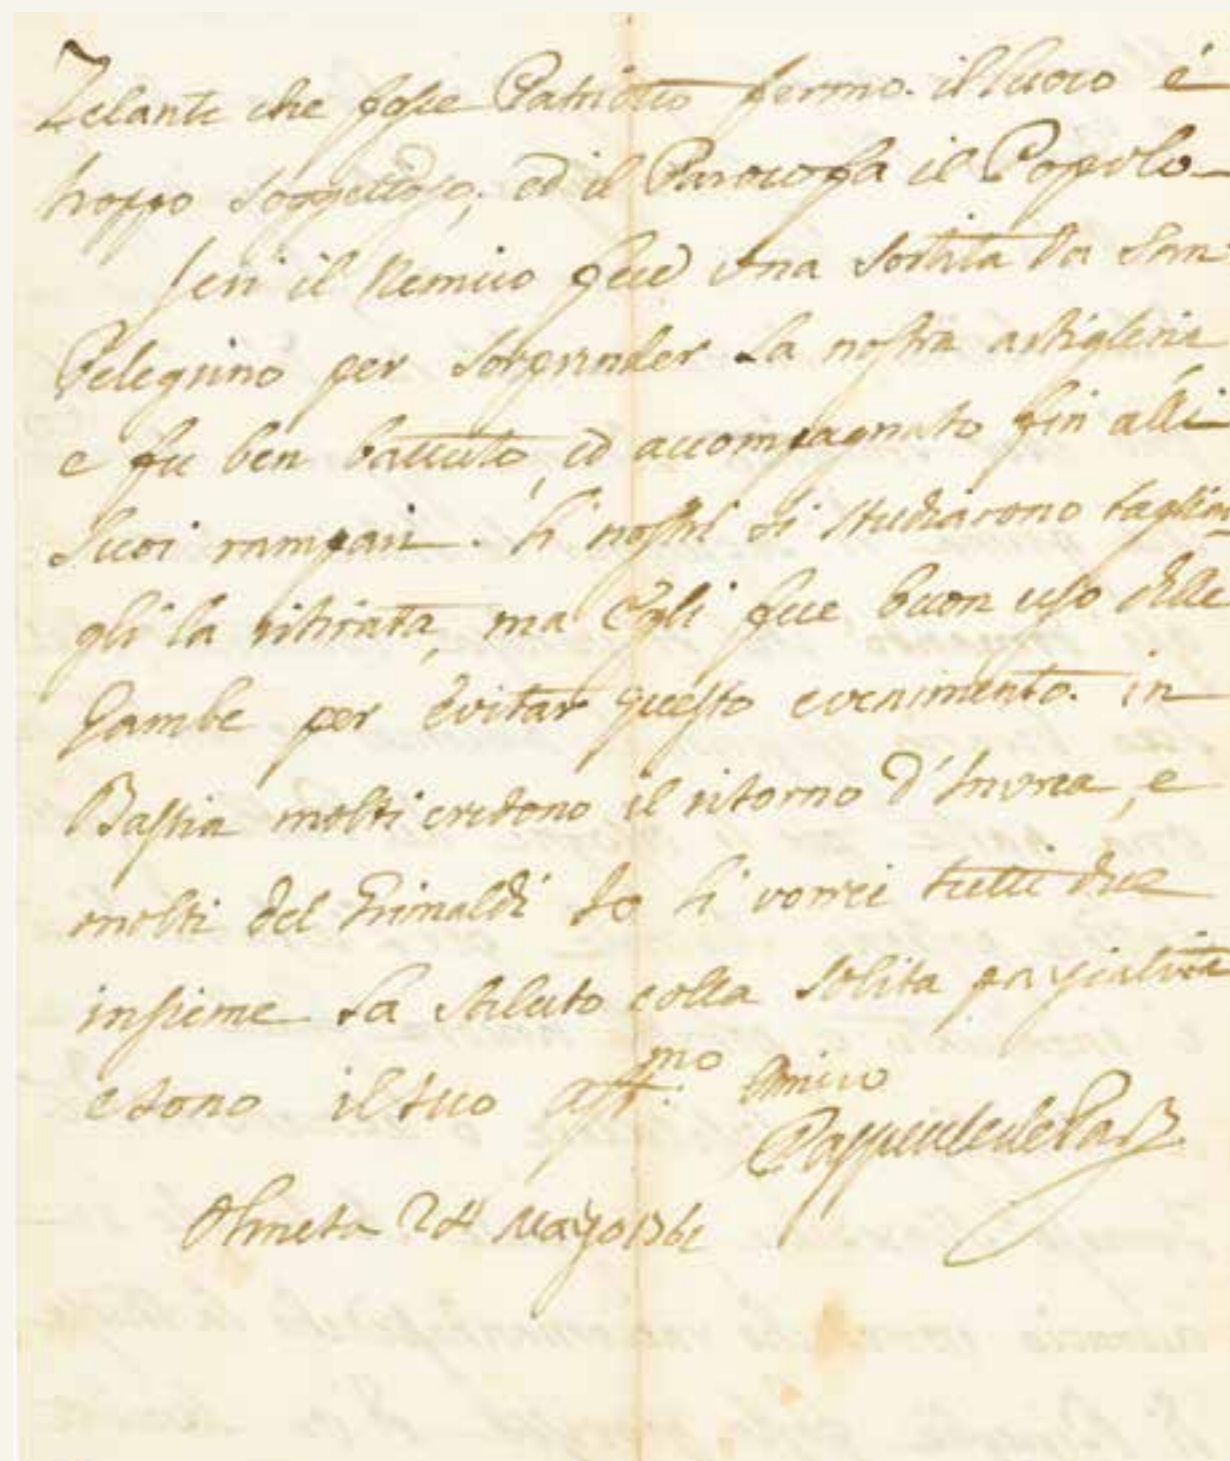 Zelante che fosse Patriotto fermo. il luoco é
troppo soggettoso; ed il Paroco fa il Popolo
Jeri il Nemico fece una sortita da San
Pelegrino per sorprender la nostra artiglieria
e fu ben battuto, ed accompagnato fin alli
suoi rampari. li nostri si studiarono taglia
gli la ritirata, ma Egli fece buon uso delle
Gambe per évitar questo evenimento. in
Bastia molti credono il ritorno d'Invrea, e
molti del Grimaldi Io li vorrei tutti due
insieme La Saluto colla solita
e sono il suo aff.mo Amico
Olmeta 24 Maggio